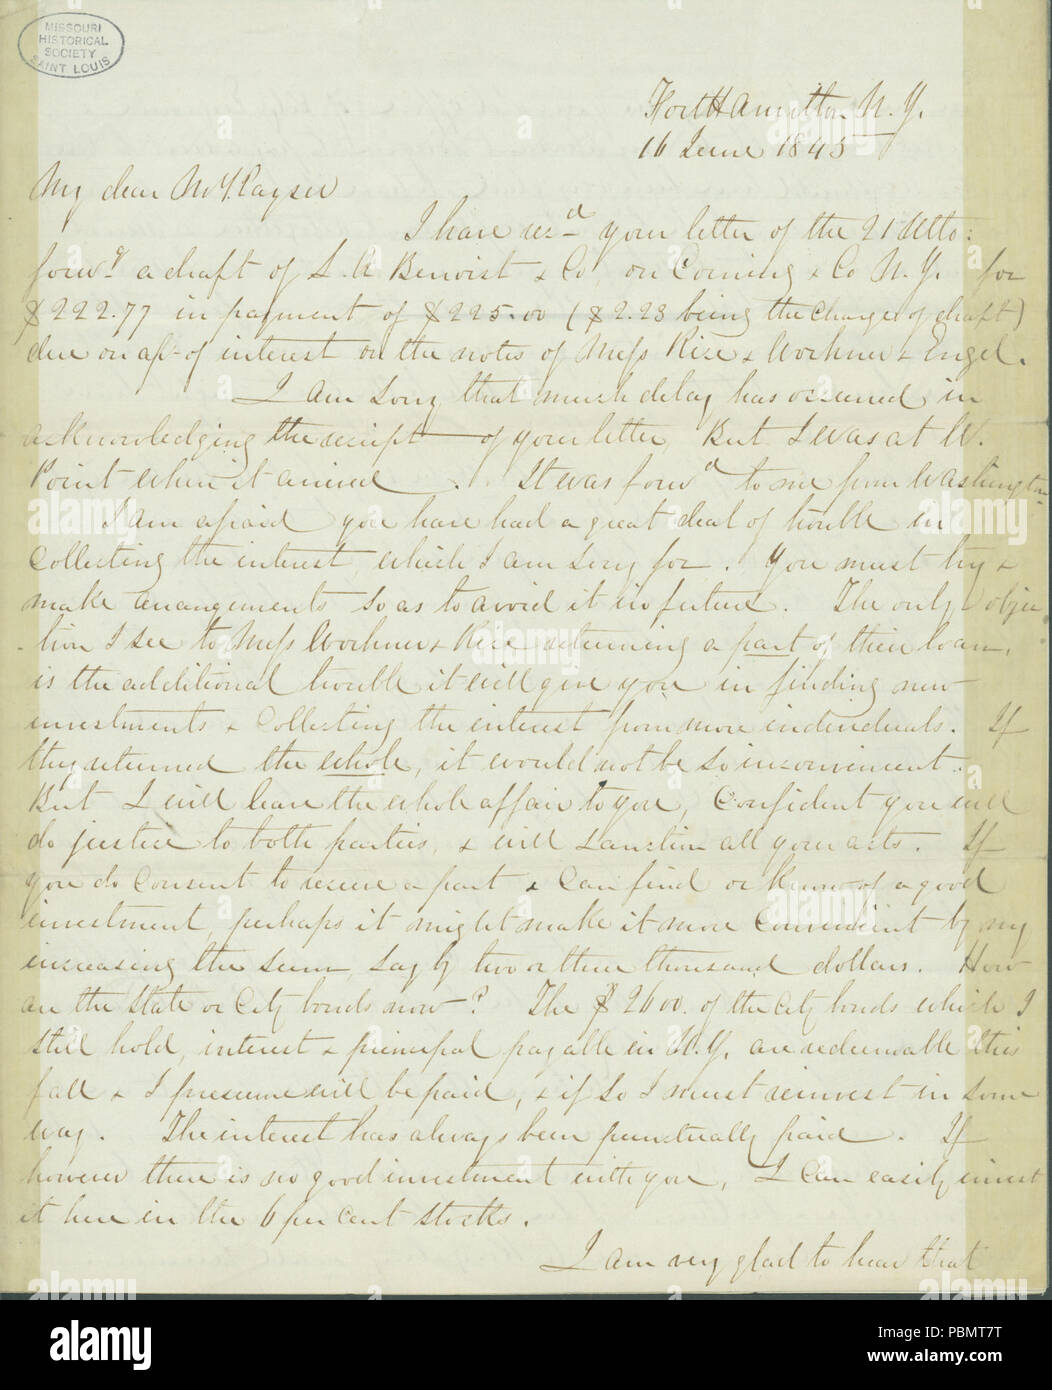 MISSOURI
HISTORICAL
SOCIETY
SAINT LOUIS
Fort Hamilton N. Y.
16 June 1845
My dear Mr. Kayser
I have recd your letter of the 21 Ulto:
forwg a draft of L. A Benoist & Co, on Corning & Co N. Y. for
$222.77 in payment of $225.00 ($2.23 being the charge of draft)
due on act of interest on the notes of Mess Rice & Wochner & Engel.
I am sorry that much delay has occurred in
acknowledging the receipt of your letter, But I was at W.
Point when it arrived. It was forwd to me from Washington
I am afraid you have had a great deal of trouble in
collecting the interest, which I am sorry for. You must try &
make arrangements so as to avoid it in future. The only objec
-tion I see to Mess Wochner & Rice returning a part of their loan,
is the additional trouble it will give you in finding new
investments & collecting the interest from more individuals. If
they returned the whole, it would not be so inconvenient.
But I will leave the whole affair to you, Confident you will
do justice to both parties, & will sanction all your acts. If
you do consent to receive a part & can find or know of a good
investment, perhaps it might make it more convenient by my
increasing the sum, say by two or three thousand dollars. How
are the State or City bonds now? The $2600. of the City bonds which I
still hold, interest & principal payable in N. Y. are redeemable this
fall & I presume will be paid, & if so I must reinvest in some
way. The interest has always been punctually paid. If
however there is no good investment with you, I can easily invest
it here in the 6 per cent stocks.
I am very glad to hear that
alamy
a
alamy
Image ID: PBMT7T
www.alamy.com